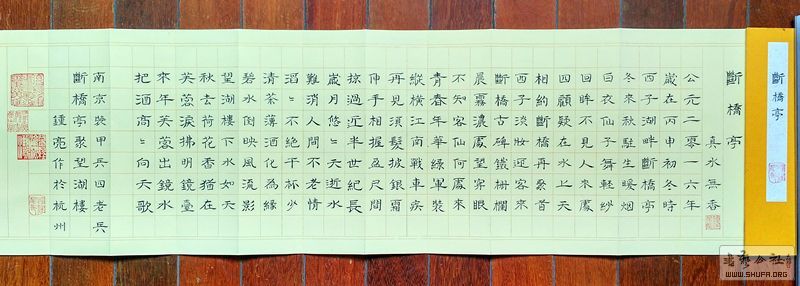 斷橋亭
斷橋亭
真水無香
公元二零一六年
歲在丙申初冬時
西子湖畔斷橋亭
冬來秋駐生暖烟
白衣仙子舞輕紗
回眸不見人來鳳
四顧疑在水上天
相約斷橋再聚首
西子淡妝迎客來
斷橋古碑鐵柵欄
晨霧濃鳳望穿眼
不知客仙何鳳來
青春年華綠軍裝
縱橫江南戰車疾
再見須髮披銀霜
伸手相握盈尺間
掠過近半世紀長
歲月悠〻天逝水
難消人間不老情
滔〻不絕干杯少
清茶薄酒化為緣
碧水倒映風流影
望湖樓下水如天
秋去荷花香猶在
芙蓉淚拂明鏡臺
來年芙蓉出鏡水
把酒高〻向天歌
南京裝甲兵四老兵
斷橋亭聚望湖樓
鍾亮作於杭州
WWW.SHUFA.ORG